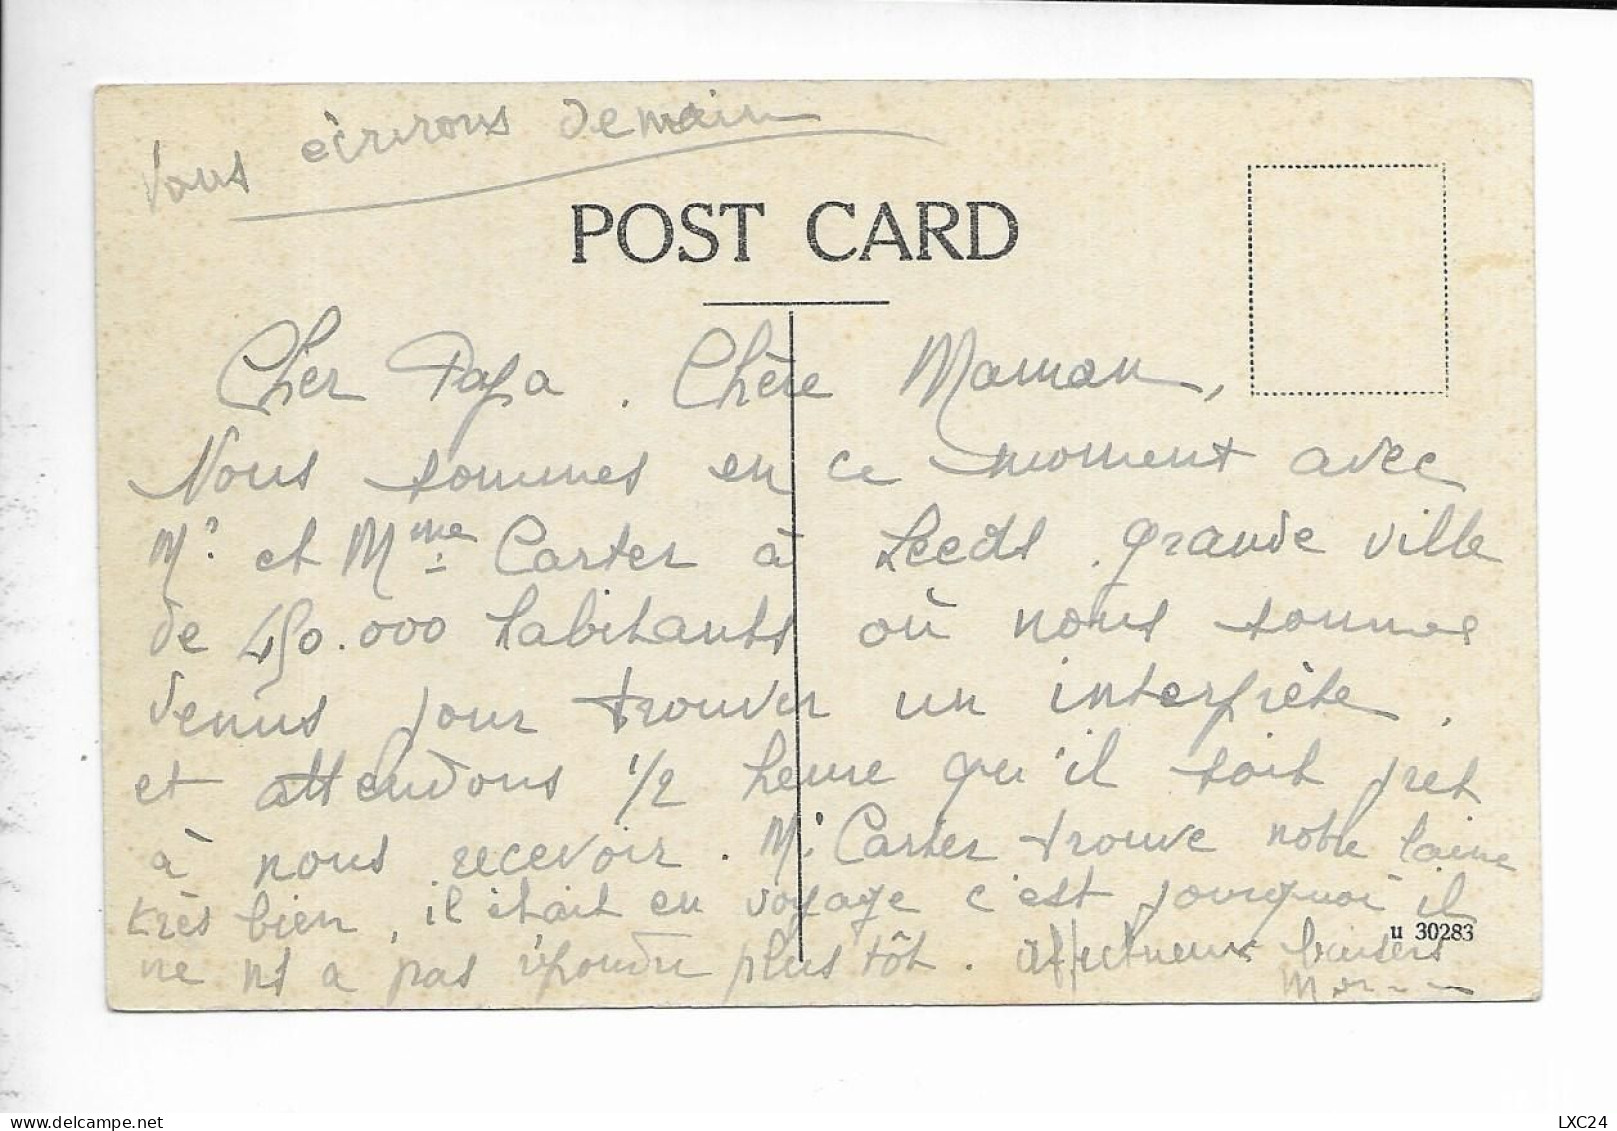 Vous écrirons demain
POST CARD
Cher Papa. Chère Maman,
Nous sommes en ce moment avec
Mr. et Mme Carter à Leeds. grande ville
de 450.000 habitants où nous sommes
venus pour trouver un interprète,
et attendons 1/2 heure qu'il soit prêt
à nous recevoir. Mr Carter trouve notre laine
très bien, il était en voyage c'est pourquoi il
u 30283
ne ns a pas répondu plus tôt. affectueux baisers